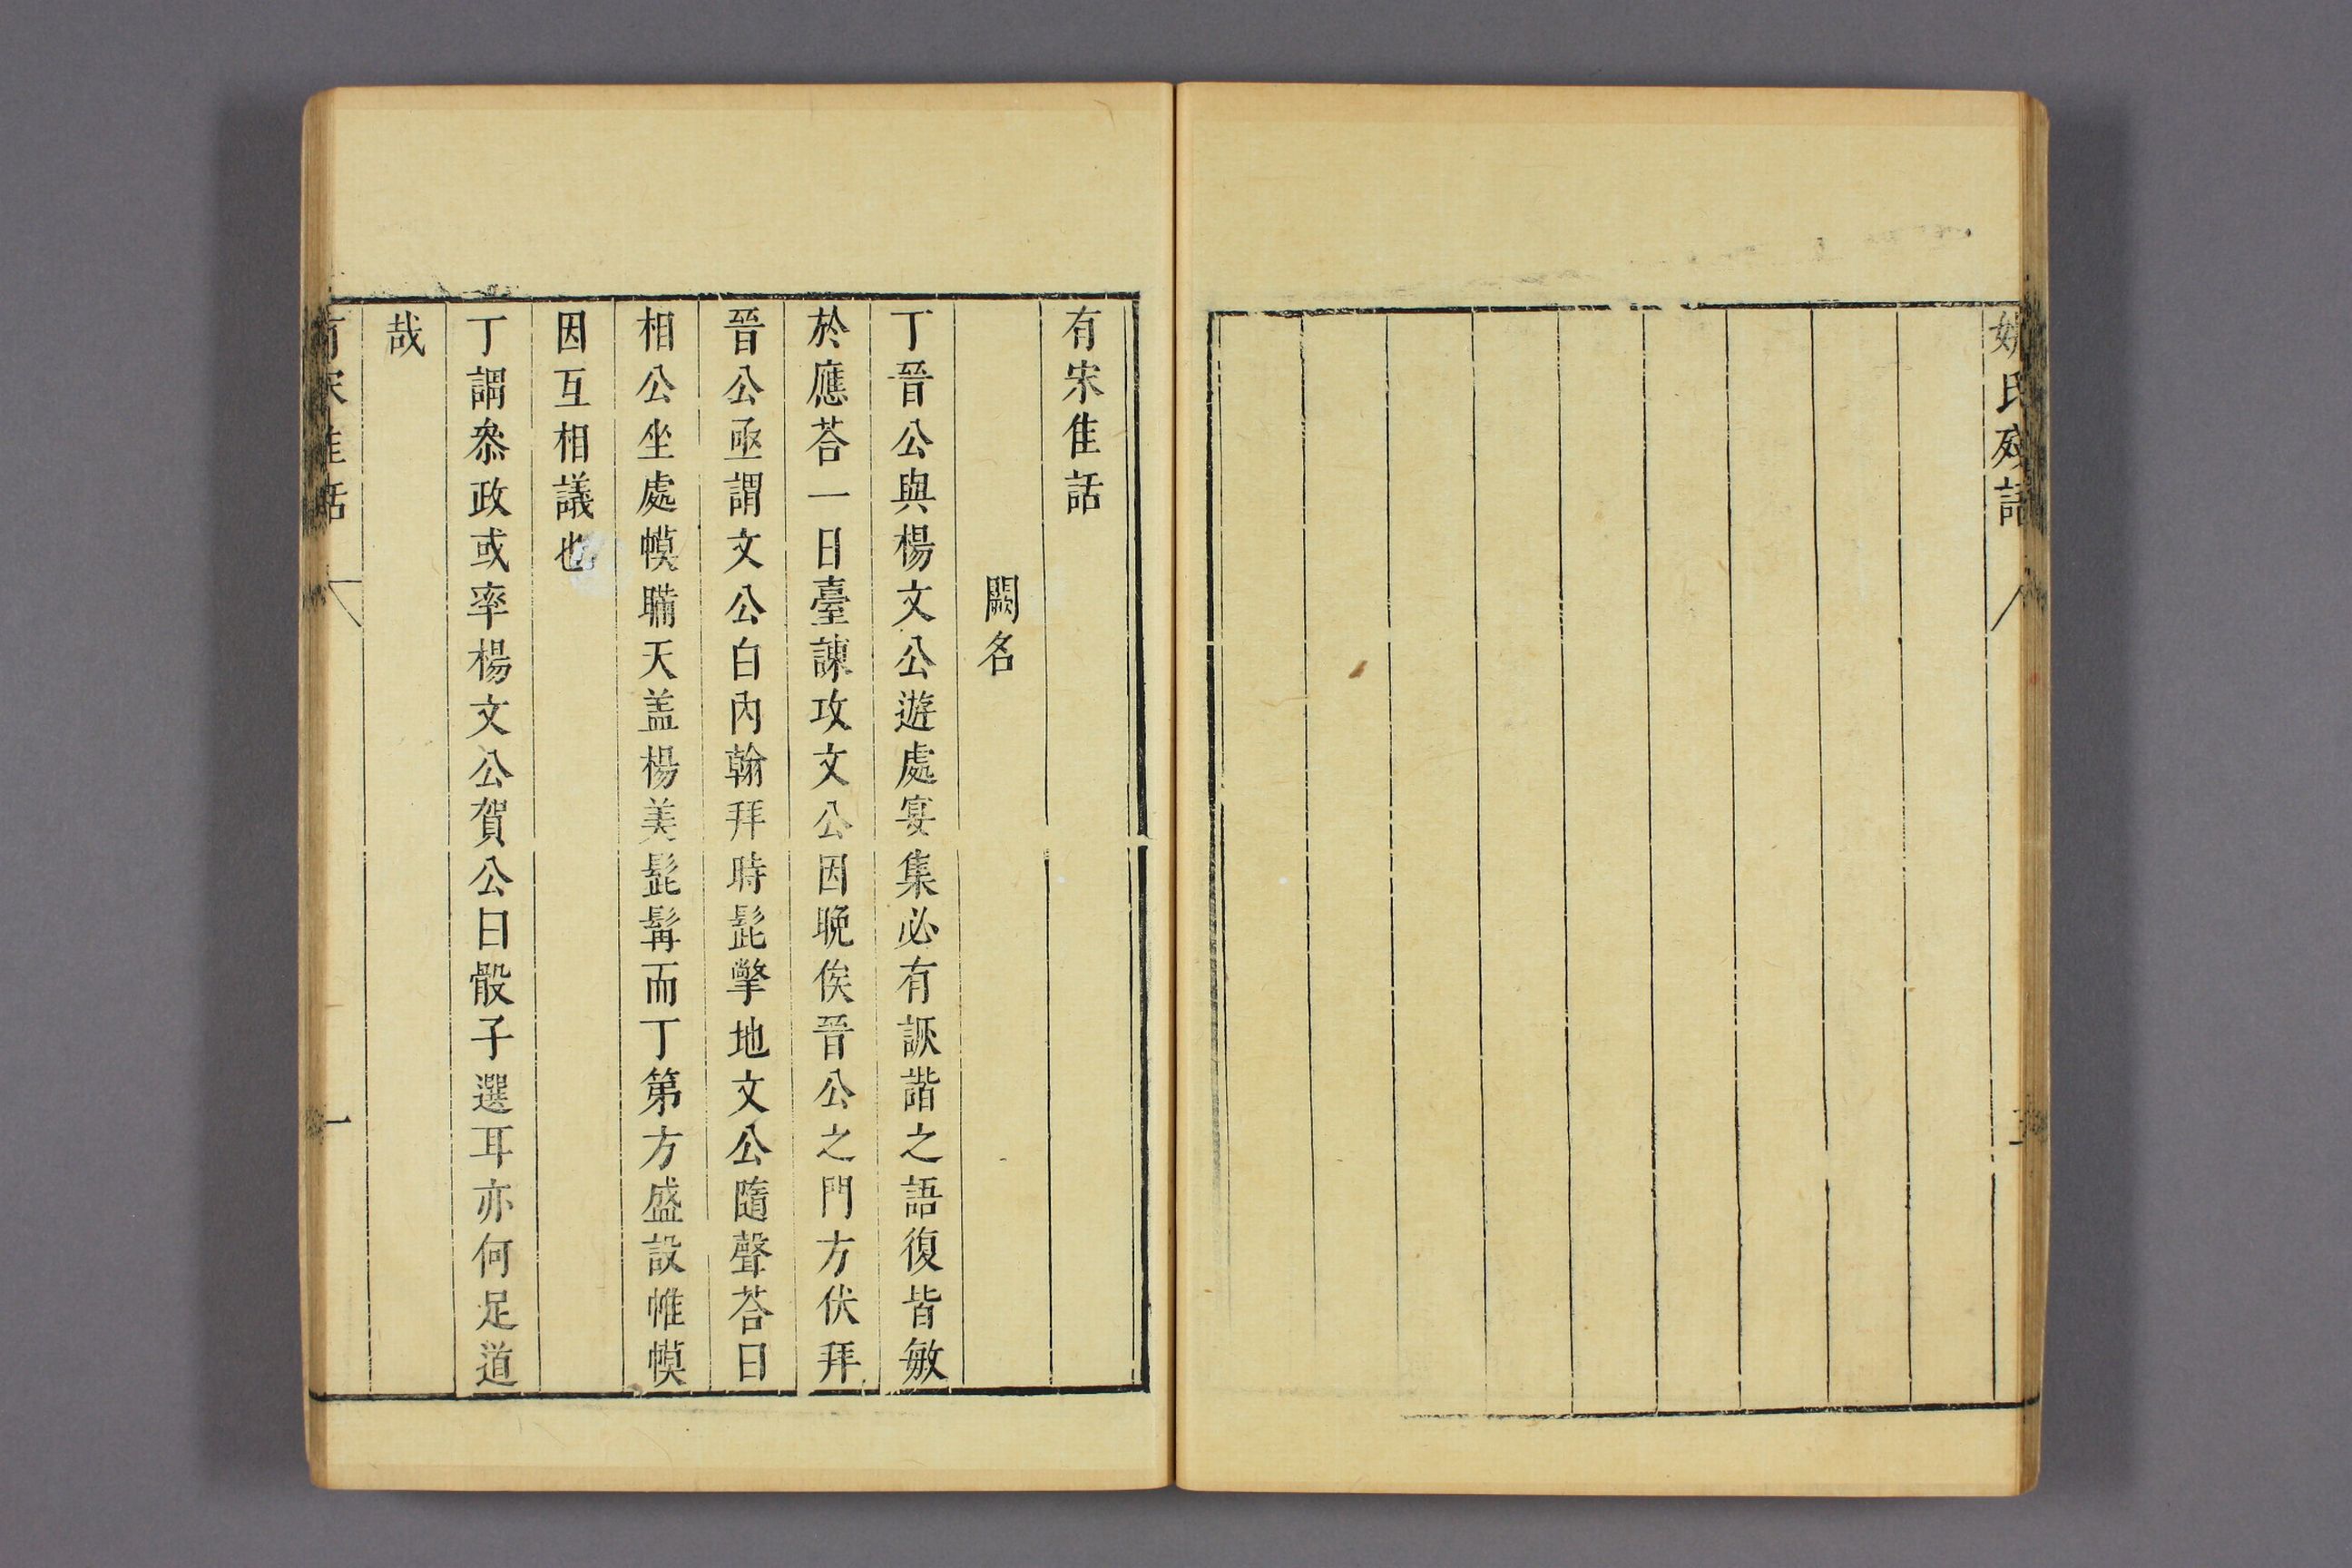 姚氏殘語
有宋隹話
闕名
丁晉公與楊文公遊處宴集必有詼諧之語復皆敏
於應荅一日臺諫攻文公因晚俟晉公之門方伏拜
晉公亟謂文公白內翰拜時髭擎地文公隨聲荅曰
相公坐處幙瞞天盖楊美髭髯而丁第方盛設帷幙
因互相議也
丁謂叅政或率楊文公賀公曰骰子選耳亦何足道
哉
有宋隹話
一